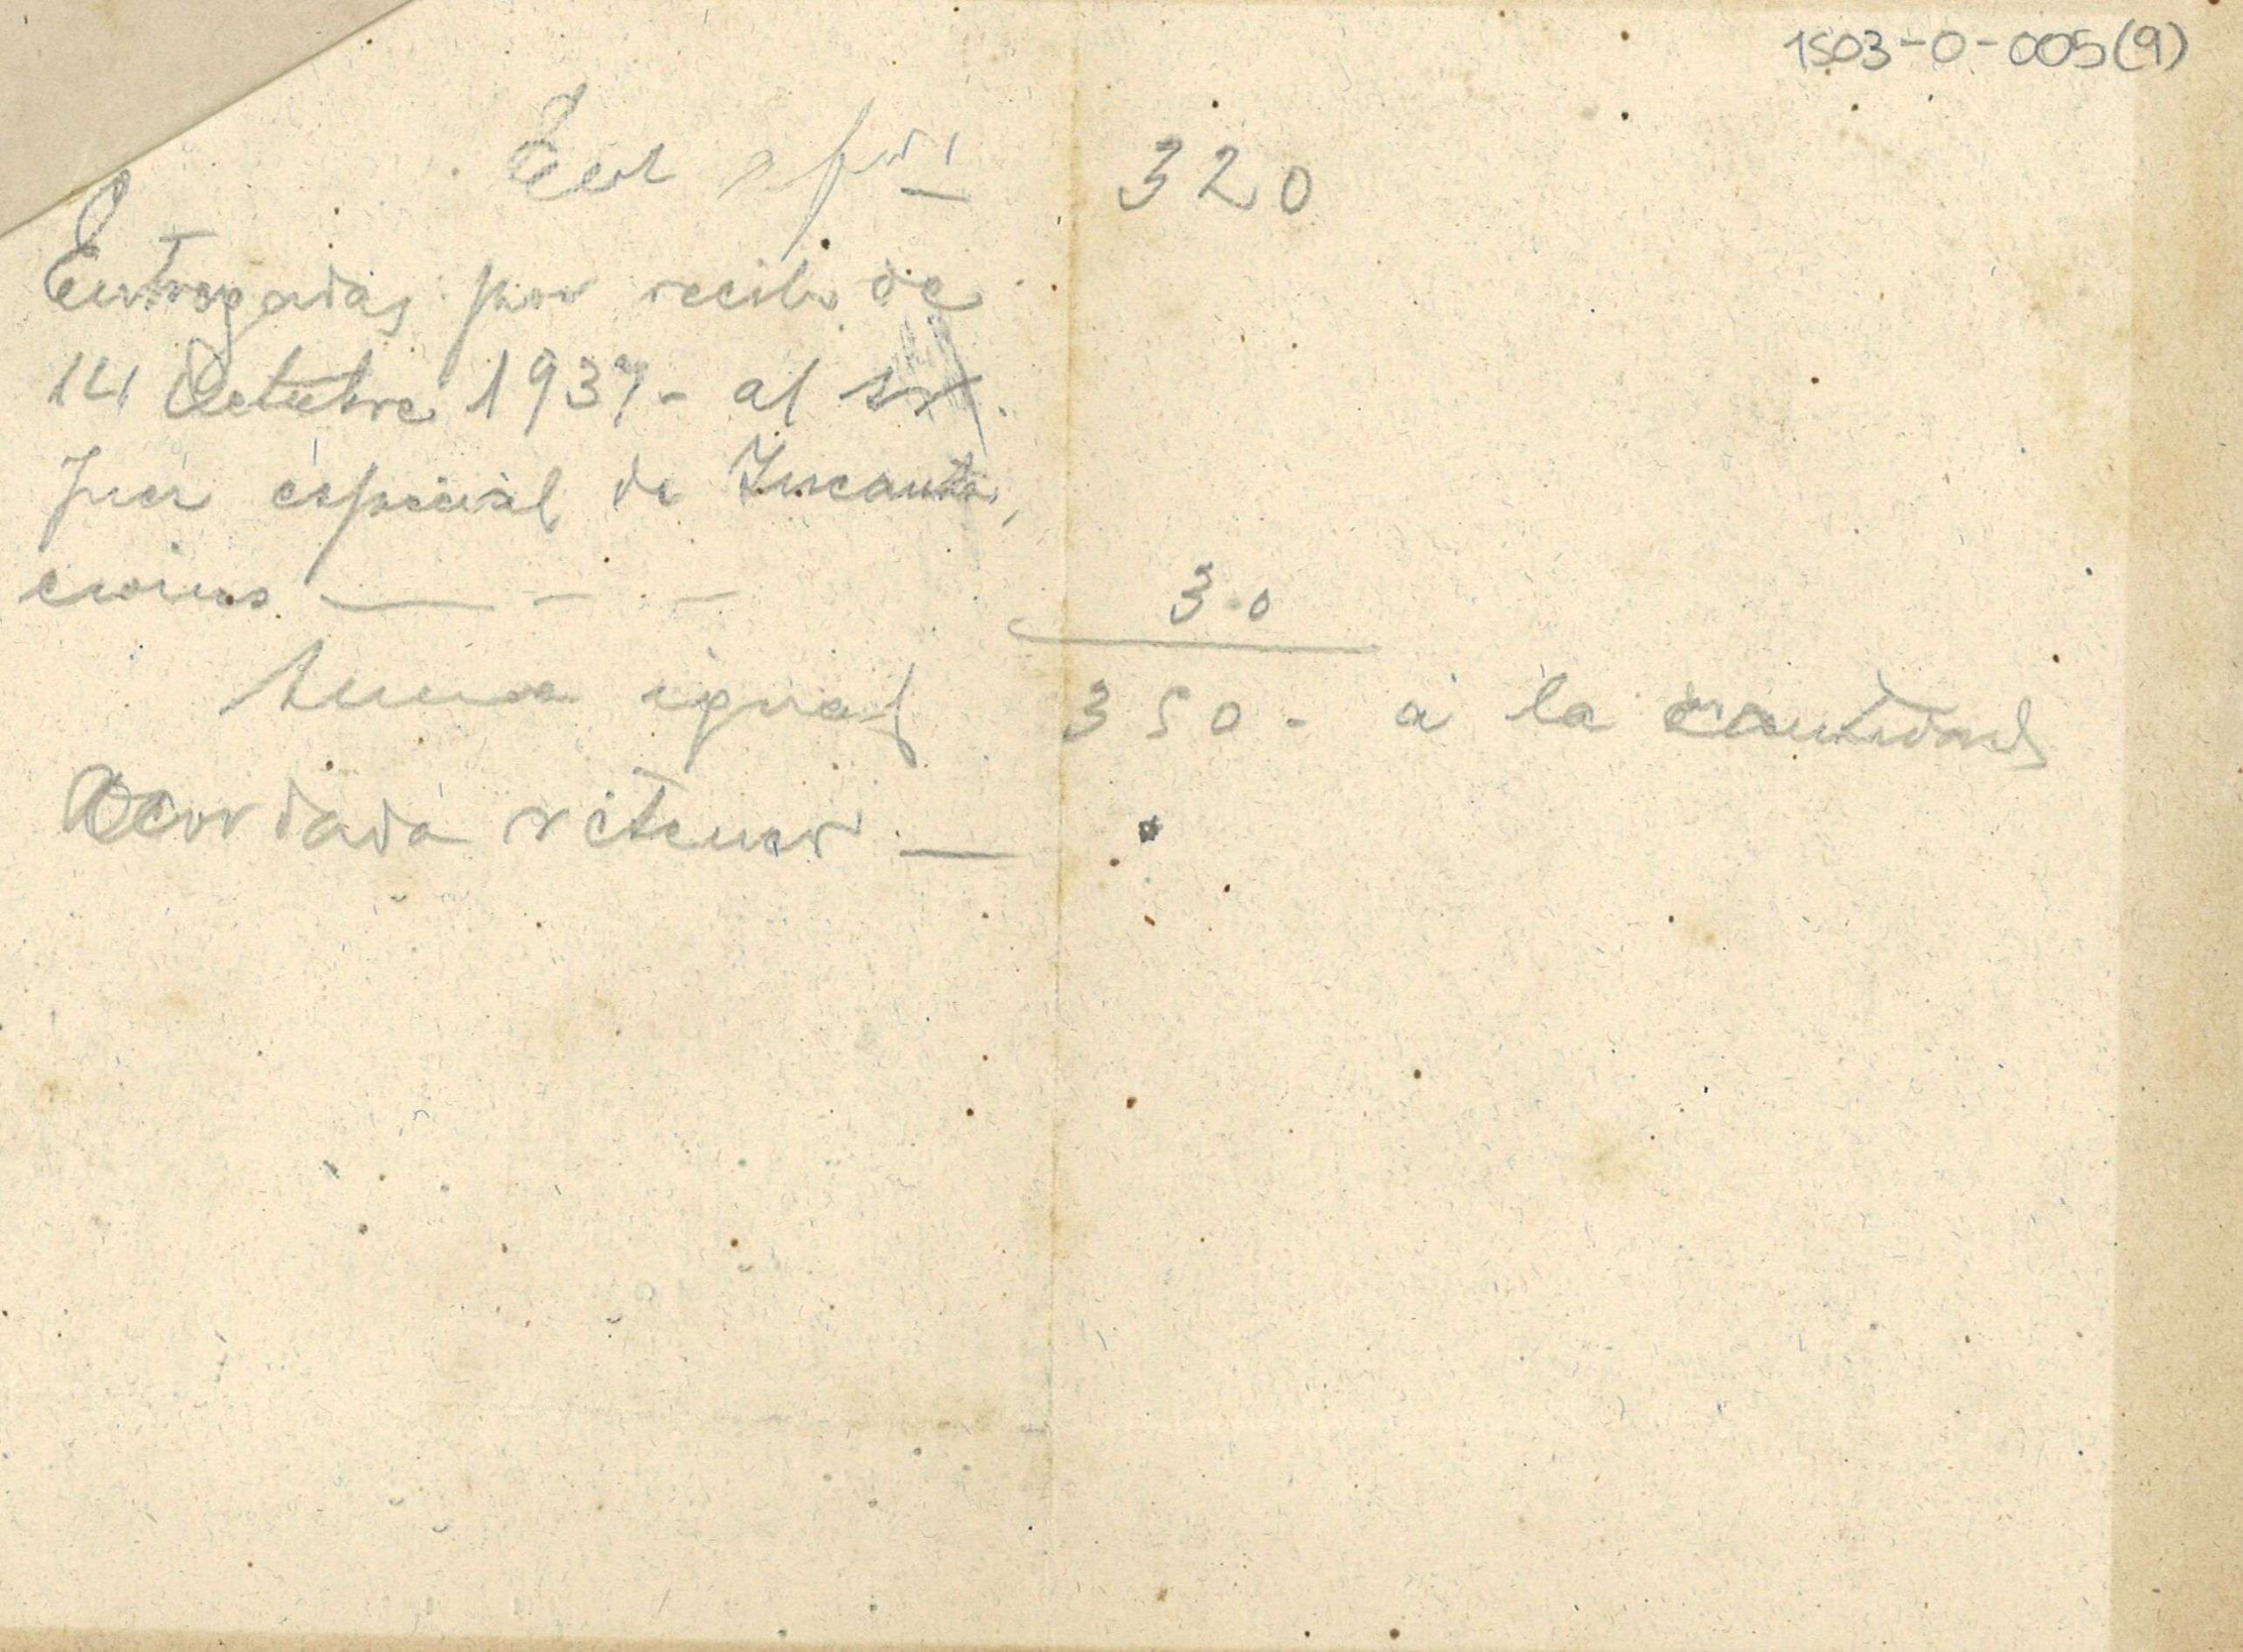 1503-O-005(9)
320
Entregadas por recibo de
14 Octubre 1937 - al sr.
Juez especial de Incauta,
ciones — - -
30
Suma igual 350 - a la cantidad
Acordada retener —